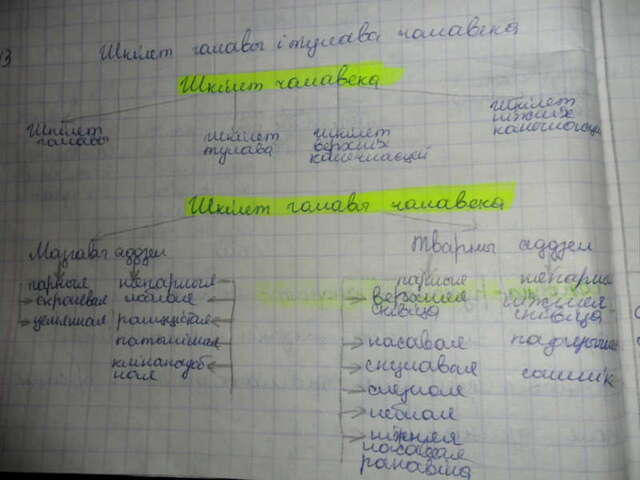 13
Шкілет галавы і тулава чалавека
Шкілет чалавека
Шкілет галавы
Шкілет тулава
Шкілет верхніх канечнасцей
Шкілет ніжніх канечнасцей
Шкілет галавы чалавека
Мазгавы аддзел
Тварны аддзел
парныя
непарныя
скроневая
лобная
цемянная
рашэцістая
патылічная
клінападоб
ная
парныя
непарны
верхняя
сківіца
ніжняя
сківіца
насавая
пад'язычная
скулавая
сашнік
слёзная
нёбная
ніжняя
насавая
ракавіна